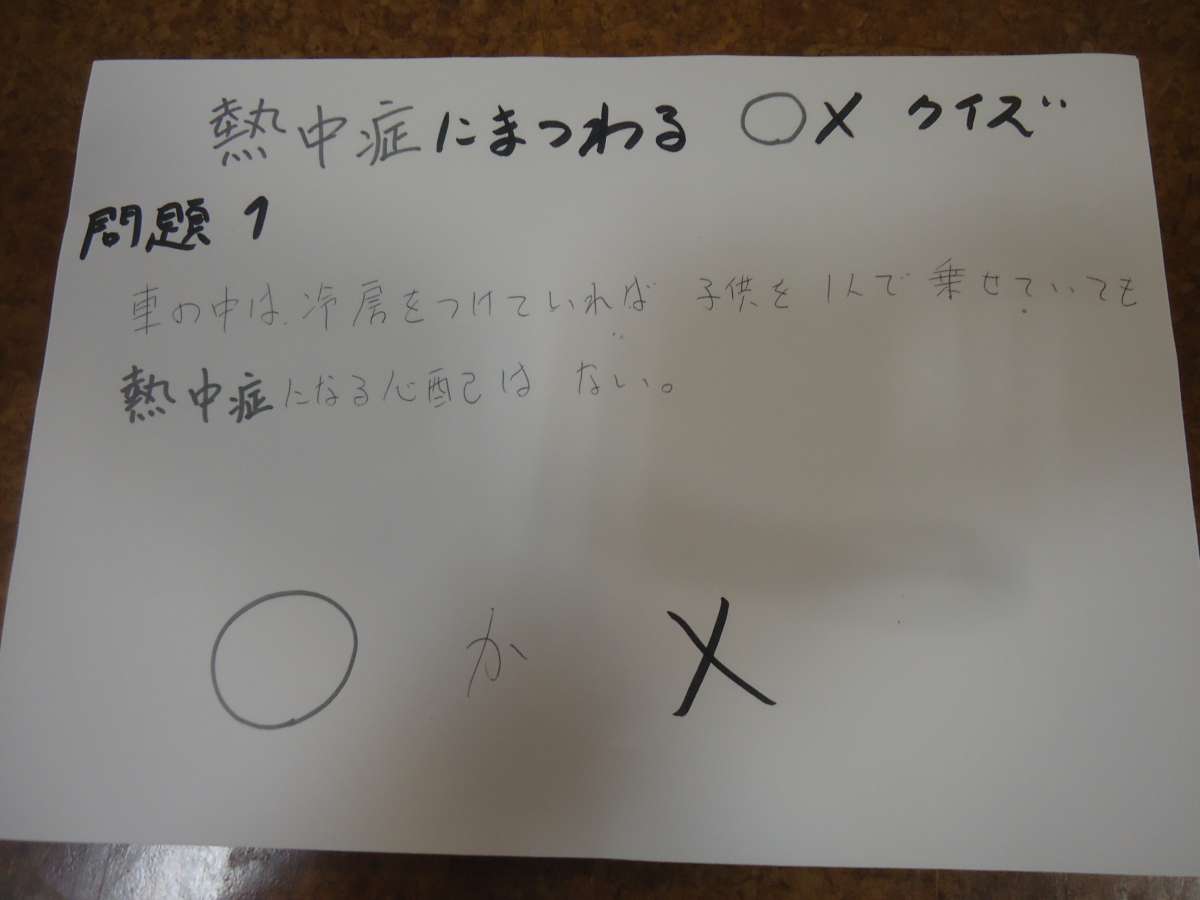 熱中症にまつわる ○× クイズ
問題 1
車の中は、冷房をつけていれば 子供を 1人で 乗せていても
熱中症になる心配は ない。
○ か ×